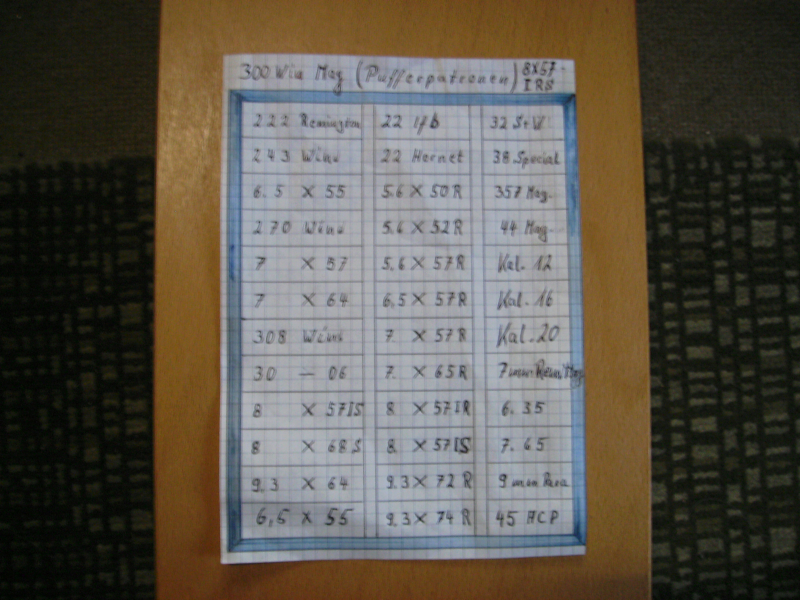 300 Win Mag (Pufferpatronen) 8x57-
IRS
222 Remington 22 lfb 32 S+W
243 Winn 22 Hornet 38 Special
6.5 X 55 5.6 X 50R 357 Mag.
270 Winn 5.6 X 52R 44 Mag.
7 X 57 5.6 X 57R Kal. 12
7 X 64 6,5 X 57R Kal. 16
308 Winn 7. X 57R Kal. 20
30 - 06 7. X 65R 7mm Rem. Mag
8 X 57IS 8. X 57IR 6.35
8 X 68S 8. X 57IS 7.65
9.3 X 64 9.3 X 72 R 9mm Para
6,5 X 55 9.3 X 74 R 45 ACP